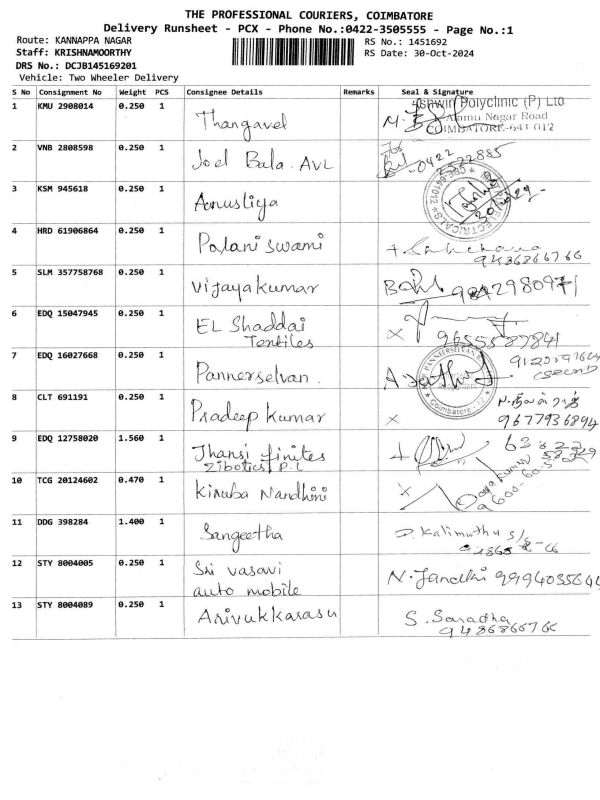 THE PROFESSIONAL COURIERS, COIMBATORE
Delivery Runsheet - PCX - Phone No.:0422-3505555 - Page No.:1
Route: KANNAPPA NAGAR
RS No.: 1451692
Staff: KRISHNAMOORTHY
RS Date: 30-Oct-2024
DRS No.: DCJB145169201
Vehicle: Two Wheeler Delivery
S No Consignment No Weight PCS Consignee Details Remarks Seal & Signature
1 KMU 2908014 0.250 1 Thangavel
Polyclinic (P) Ltd
Nagar Road
COIMBATORE-641 012
2 VNB 2808598 0.250 1 Joel Bala. AVL
0422
2522885
3 KSM 945618 0.250 1 Anusliya
ELECTRICALS
4 HRD 61906864 0.250 1 Palani Swami
9486866766
5 SLM 357758768 0.250 1 Vijayakumar
6 EDQ 15047945 0.250 1 EL Shaddai
Tentiles
9655587841
7 EDQ 16027668 0.250 1 Pannerselvan.
PANNERSELVAN
Coimbatore - 12
8 CLT 691191 0.250 1 Pradeep Kumar
9677936894
9 EDQ 12758020 1.560 1 Jhansi finites
Zibotics P.L
10 TCG 20124602 0.470 1 Kiruba Nandhini
11 DDG 398284 1.400 1 Sangeetha
D. Kalimuthu S/o
12 STY 8004005 0.250 1 Sri vasavi
auto mobile
N. Janathi 9994035644
13 STY 8004089 0.250 1 Arivukkarasu
S. Saradha
9486866766